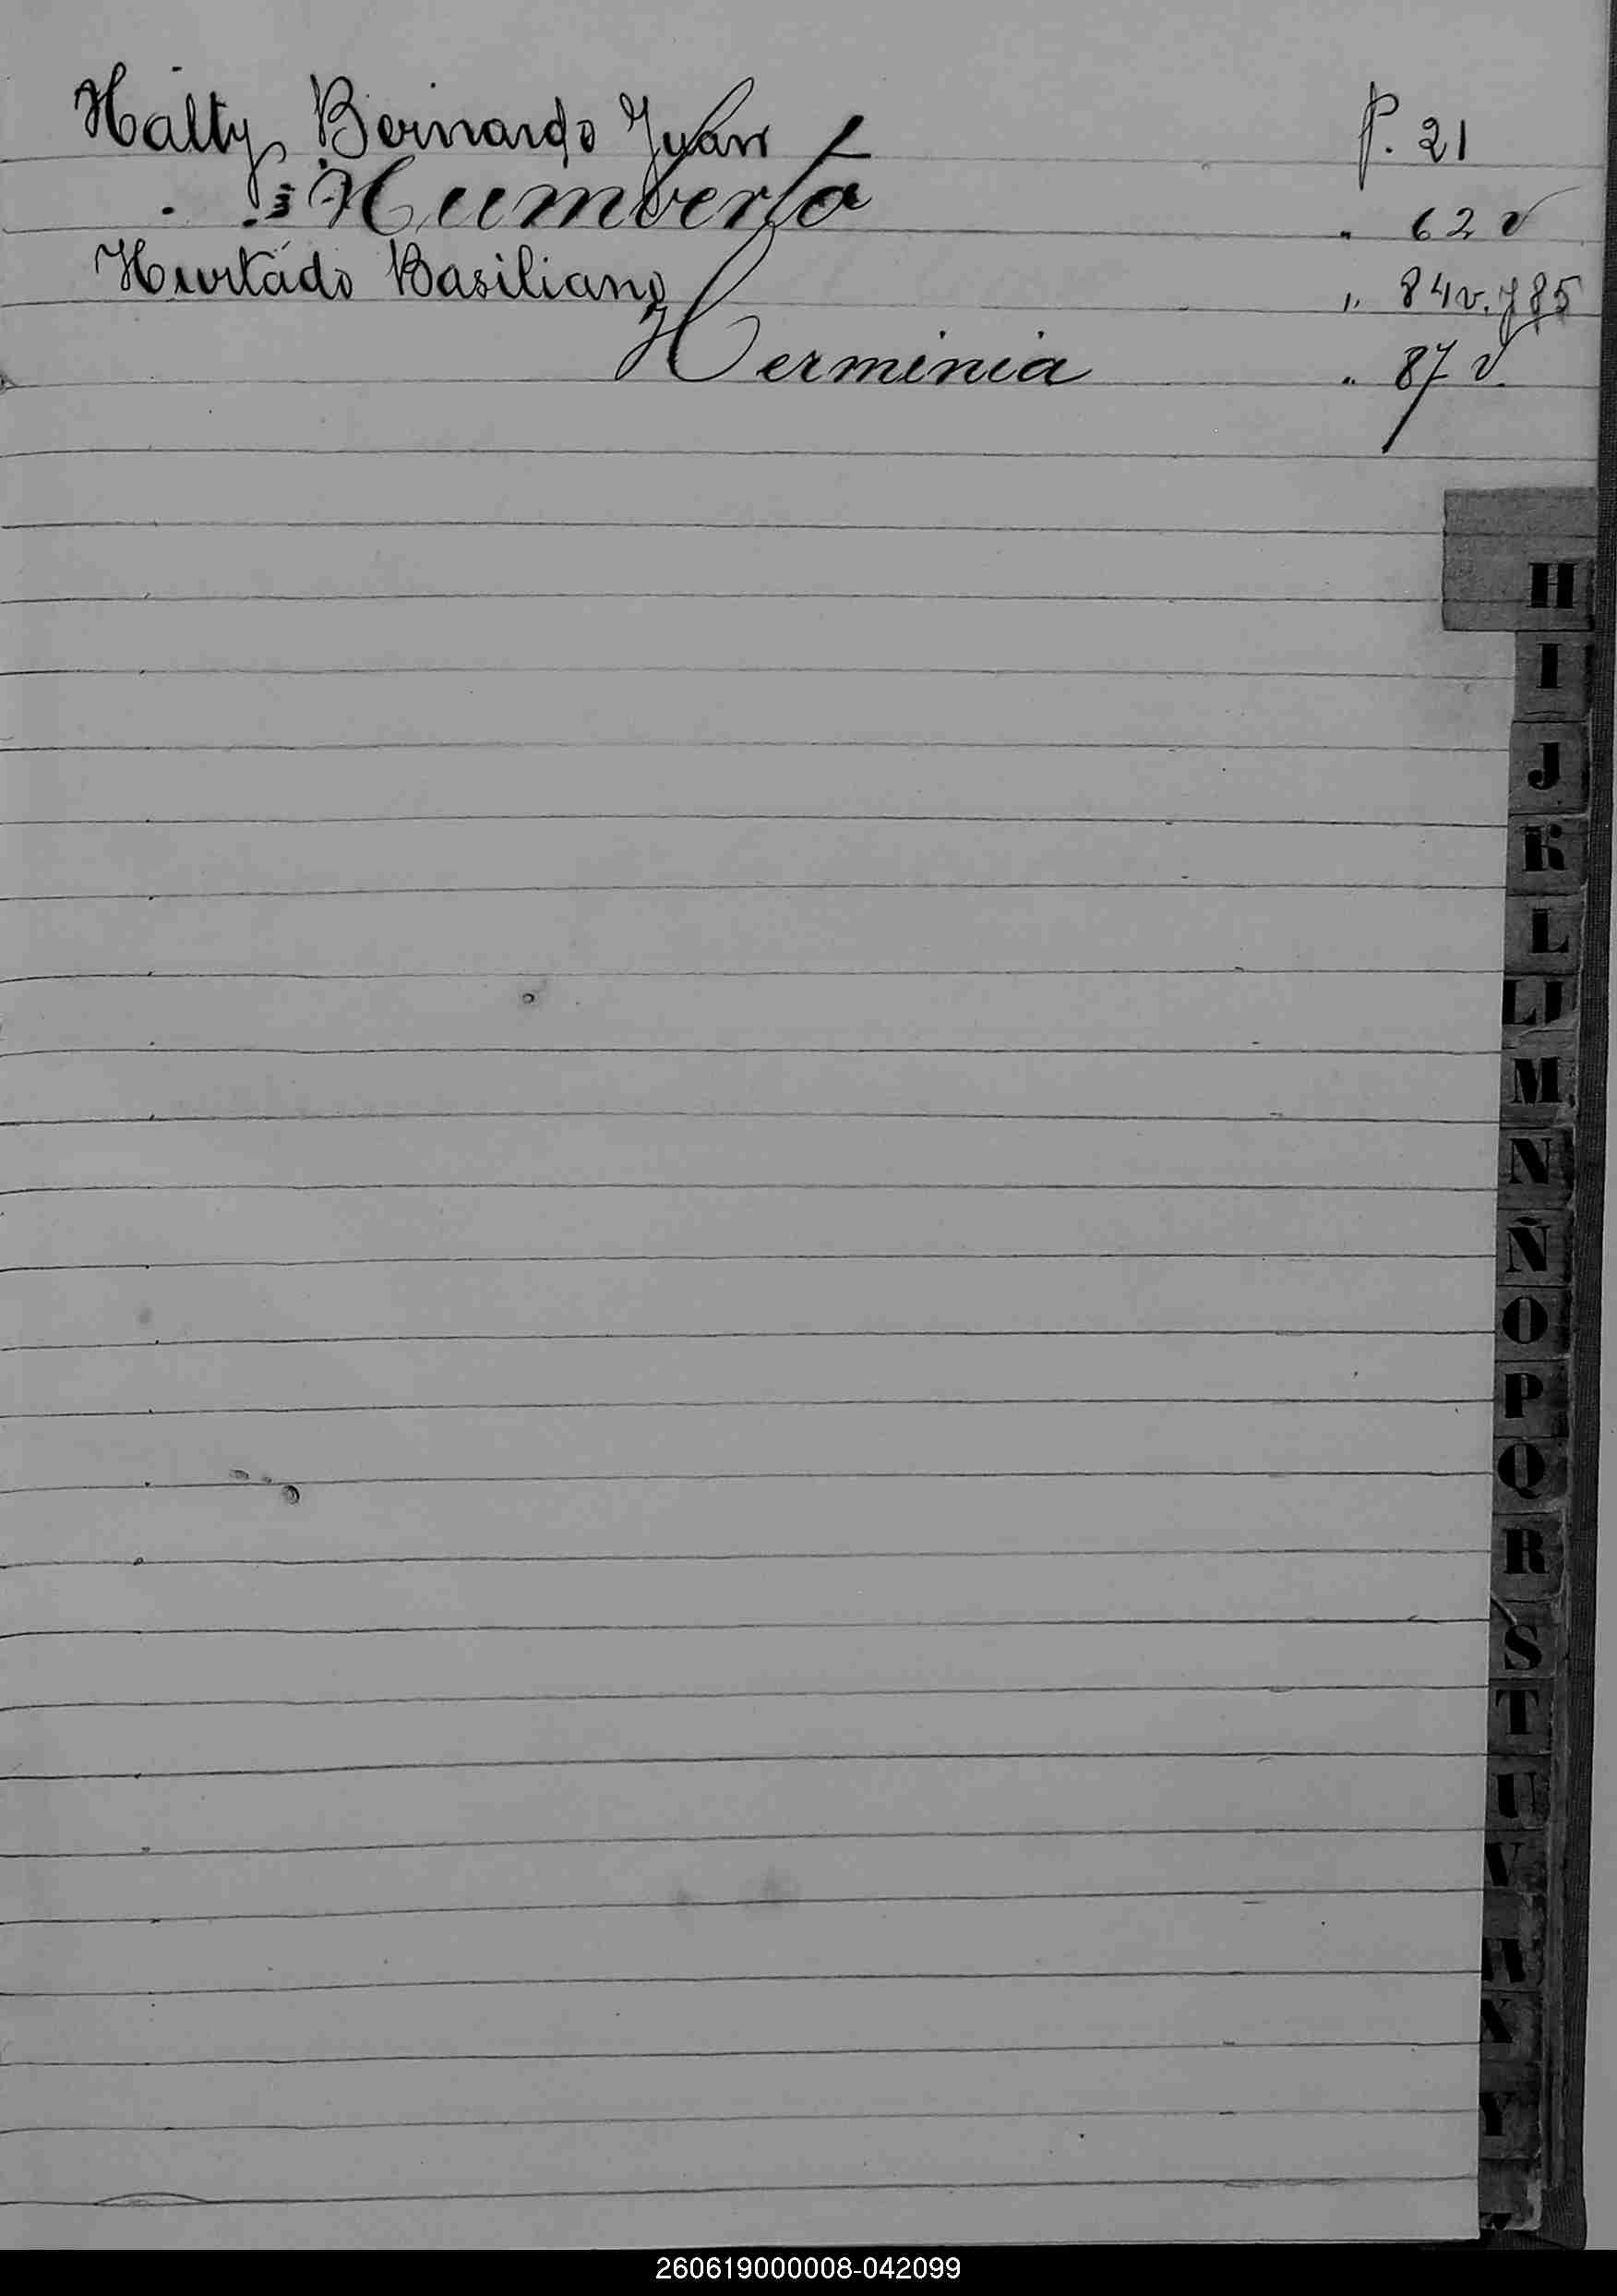 Halty Bernardo Juan P. 21
" " Humberto " 62 v
Hurtado Basiliano " 84 v. y 85
Herminia " 87 v.
H
I
J
K
L
Ll
M
N
Ñ
O
P
Q
R
S
T
U
V
X
Y
260619000008-042099